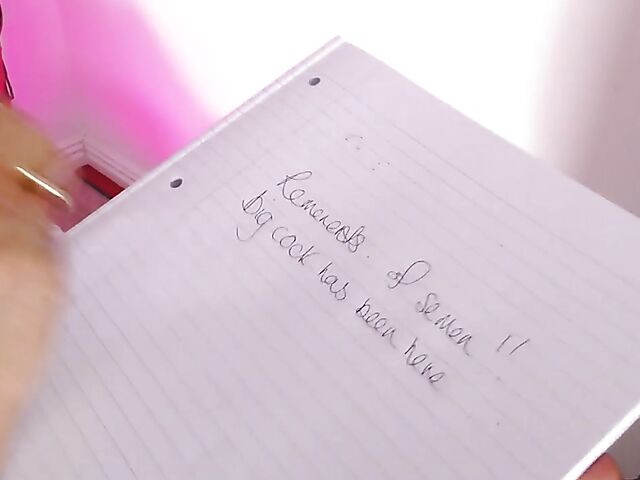 Remenents. of semen !!
big cock has been here